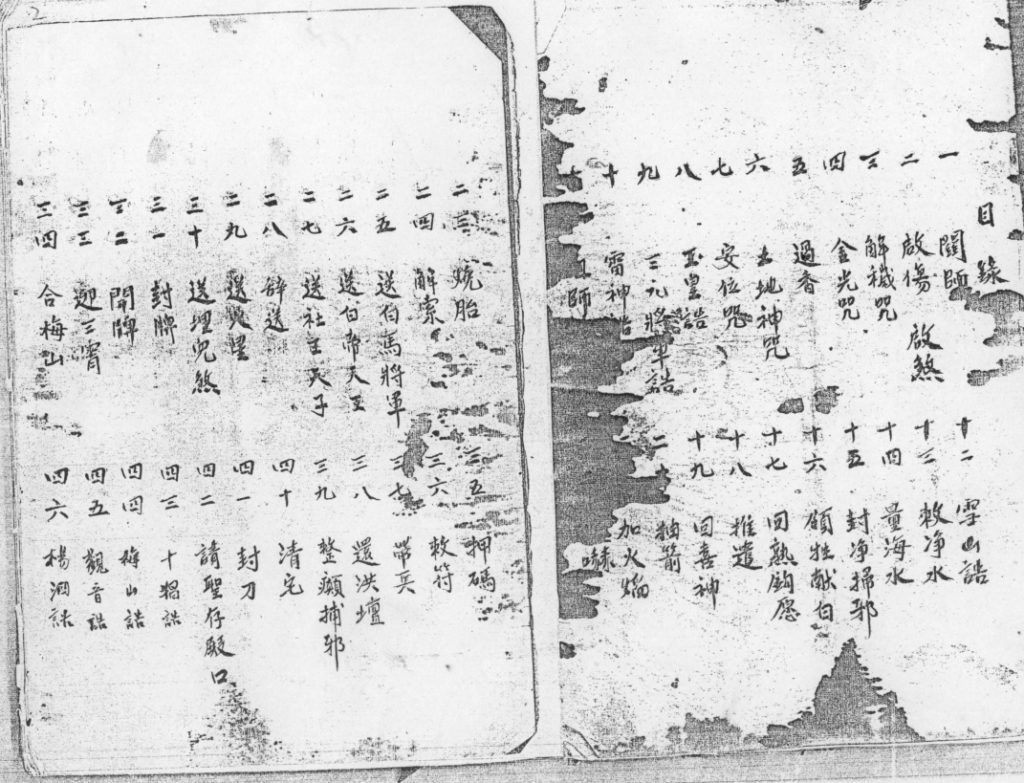 2
目錄
一 閭師
二 啟傷 啟煞
三 解穢咒
四 金光咒
五 過香
六 土地神咒
七 安位咒
八 玉皇誥
九 三元將軍誥
十 雷神
師
十二 雪山誥
十三 敕净水
十四 量海水
十五 封净掃邪
十六 領牲献白
十七 回熟鈎愿
十八 推遣
十九 回喜神
二 抽箭
加火焰
二三 燒胎
二四 解索
二五 送白馬將軍
二六 送白帝天王
二七 送社主天子
二八 辞送
二九 送
三十 送埋兇煞
三一 封牌
三二 開牌
三三 迎三霄
三四 合梅山
三五 押碼
三六 敕符
三七 带兵
三八 還洪壇
三九 整癲捕邪
四十 清宅
四一 封刀
四二 請聖存殿口
四三 十 誥
四四 梅山誥
四五 觀音誥
四六 楊泗誥